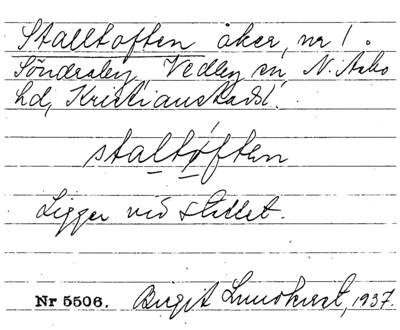 Stalltoften åker, nr 1.
Sönderaby, Vedby sn N. Åsbo
hd, Kristianstads l.
staltoften
Ligger vid stallet.
Nr 5506. Birgit Lundkvist, 1937.